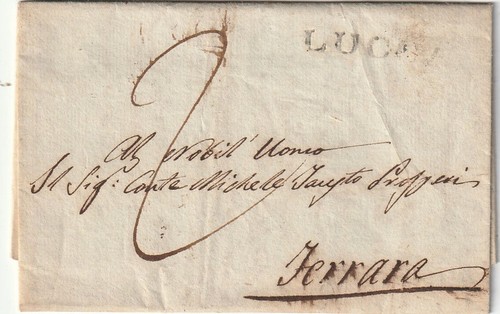 LUCCA
2
Al Nobil' Uomo
Il Sig.: Conte Michele Fausto Prosperi
Ferrara